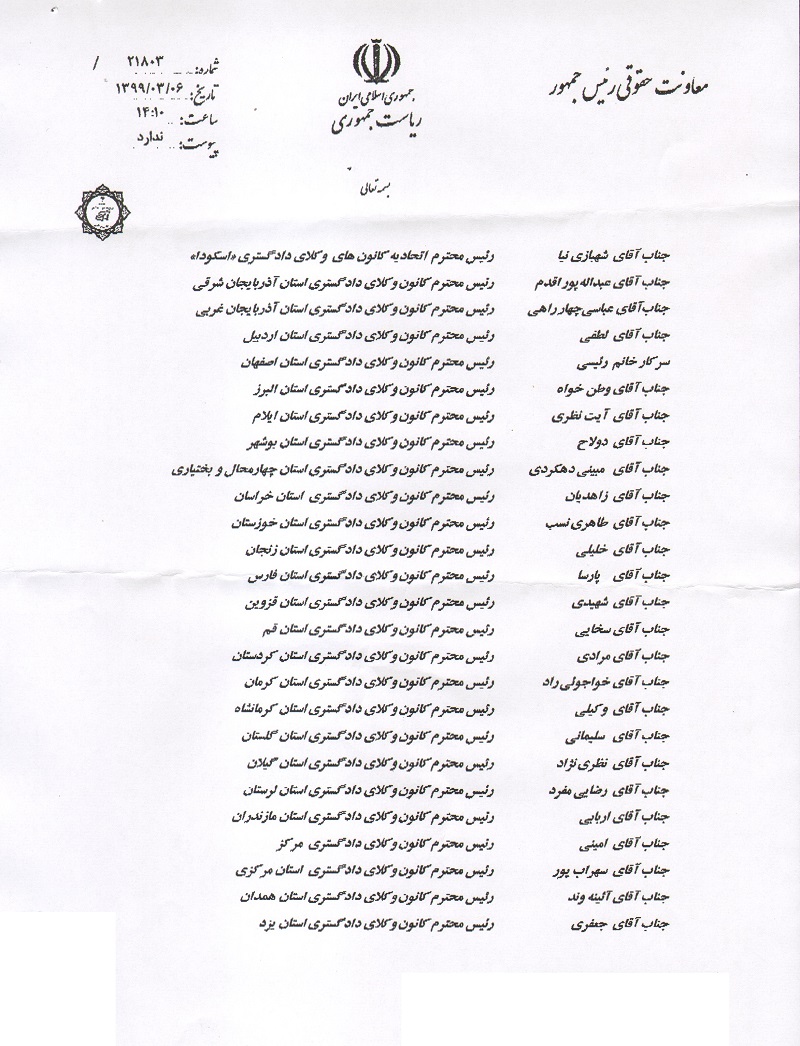 معاونت حقوقی رئیس جمهور
جمهوری اسلامی ایران
ریاست جمهوری
شماره: ۲۱۸۰۳ /
تاریخ: ۱۳۹۹/۰۳/۰۶
ساعت: ۱۴:۱۰
پیوست: ندارد
بسمه تعالی
جناب آقای شهبازی نیا رئیس محترم اتحادیه کانون های وکلای دادگستری «اسکودا»
جناب آقای عبداله پور اقدم رئیس محترم کانون وکلای دادگستری استان آذربایجان شرقی
جناب آقای عباسی چهار راهی رئیس محترم کانون وکلای دادگستری استان آذربایجان غربی
جناب آقای لطفی رئیس محترم کانون وکلای دادگستری استان اردبیل
سرکار خانم رئیسی رئیس محترم کانون وکلای دادگستری استان اصفهان
جناب آقای وطن خواه رئیس محترم کانون وکلای دادگستری استان البرز
جناب آقای آیت نظری رئیس محترم کانون وکلای دادگستری استان ایلام
جناب آقای دولاح رئیس محترم کانون وکلای دادگستری استان بوشهر
جناب آقای مبینی دهکردی رئیس محترم کانون وکلای دادگستری استان چهارمحال و بختیاری
جناب آقای زاهدیان رئیس محترم کانون وکلای دادگستری استان خراسان
جناب آقای طاهری نسب رئیس محترم کانون وکلای دادگستری استان خوزستان
جناب آقای خلیلی رئیس محترم کانون وکلای دادگستری استان زنجان
جناب آقای پارسا رئیس محترم کانون وکلای دادگستری استان فارس
جناب آقای شهیدی رئیس محترم کانون وکلای دادگستری استان قزوین
جناب آقای سخایی رئیس محترم کانون وکلای دادگستری استان قم
جناب آقای مرادی رئیس محترم کانون وکلای دادگستری استان کردستان
جناب آقای خواجوئی راد رئیس محترم کانون وکلای دادگستری استان کرمان
جناب آقای وکیلی رئیس محترم کانون وکلای دادگستری استان کرمانشاه
جناب آقای سلیمانی رئیس محترم کانون وکلای دادگستری استان گلستان
جناب آقای نظری نژاد رئیس محترم کانون وکلای دادگستری استان گیلان
جناب آقای رضایی مفرد رئیس محترم کانون وکلای دادگستری استان لرستان
جناب آقای اربابی رئیس محترم کانون وکلای دادگستری استان مازندران
جناب آقای امینی رئیس محترم کانون وکلای دادگستری مرکز
جناب آقای سهراب پور رئیس محترم کانون وکلای دادگستری استان مرکزی
جناب آقای آئینه وند رئیس محترم کانون وکلای دادگستری استان همدان
جناب آقای جعفری رئیس محترم کانون وکلای دادگستری استان یزد